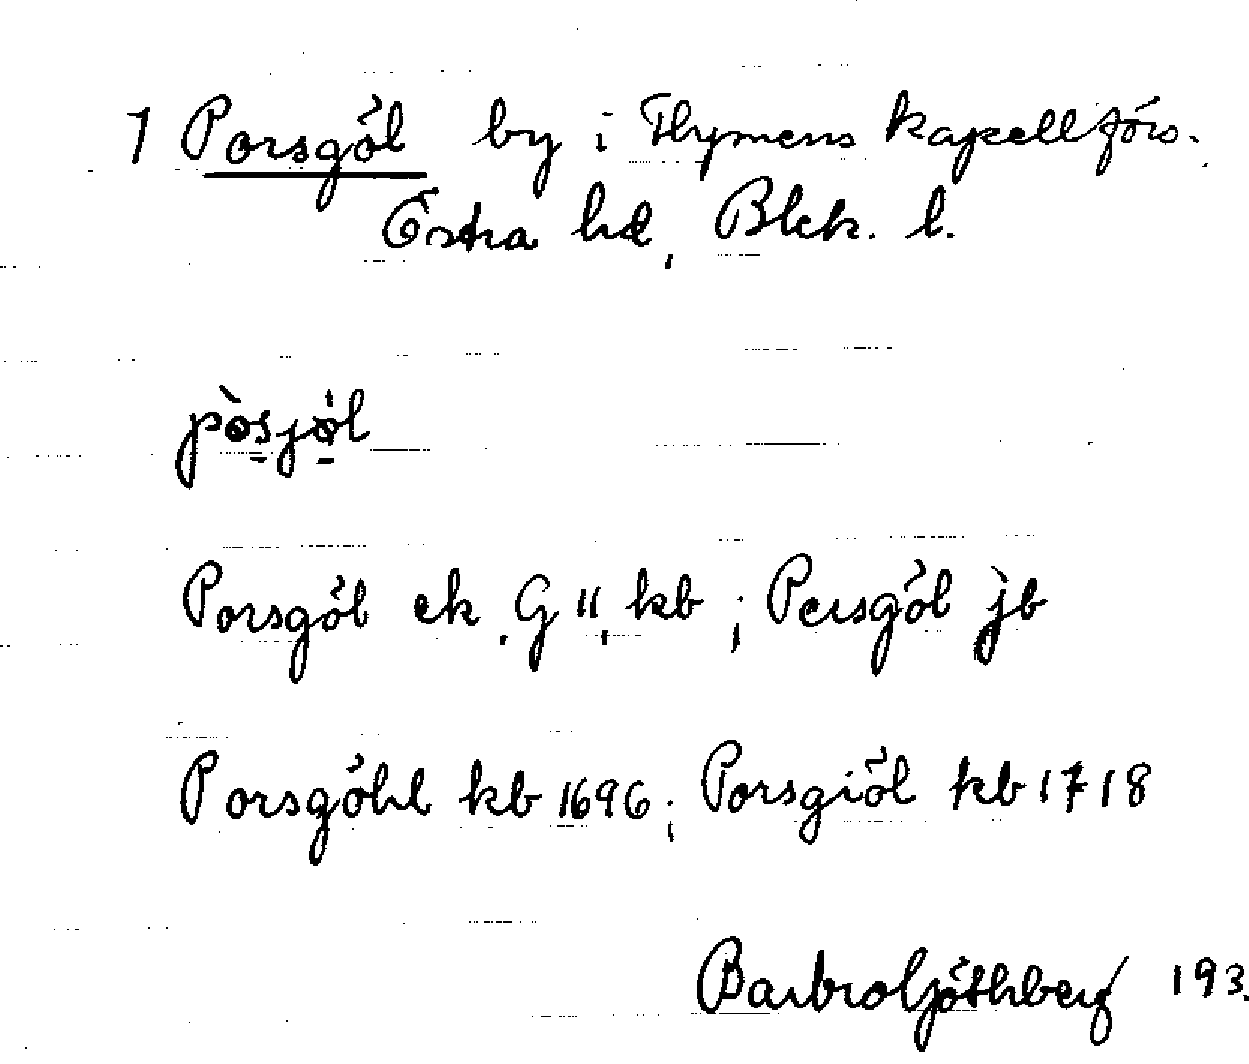 1 Porsgöl by i Flymens kapellförs.
Östra hd, Blek. l.
Porsgöl ek, G 11, kb ; Persgöl jb
Porsgöhl kb 1696 ; Porsgiöl kb 1718
Barbro Göthberg 193